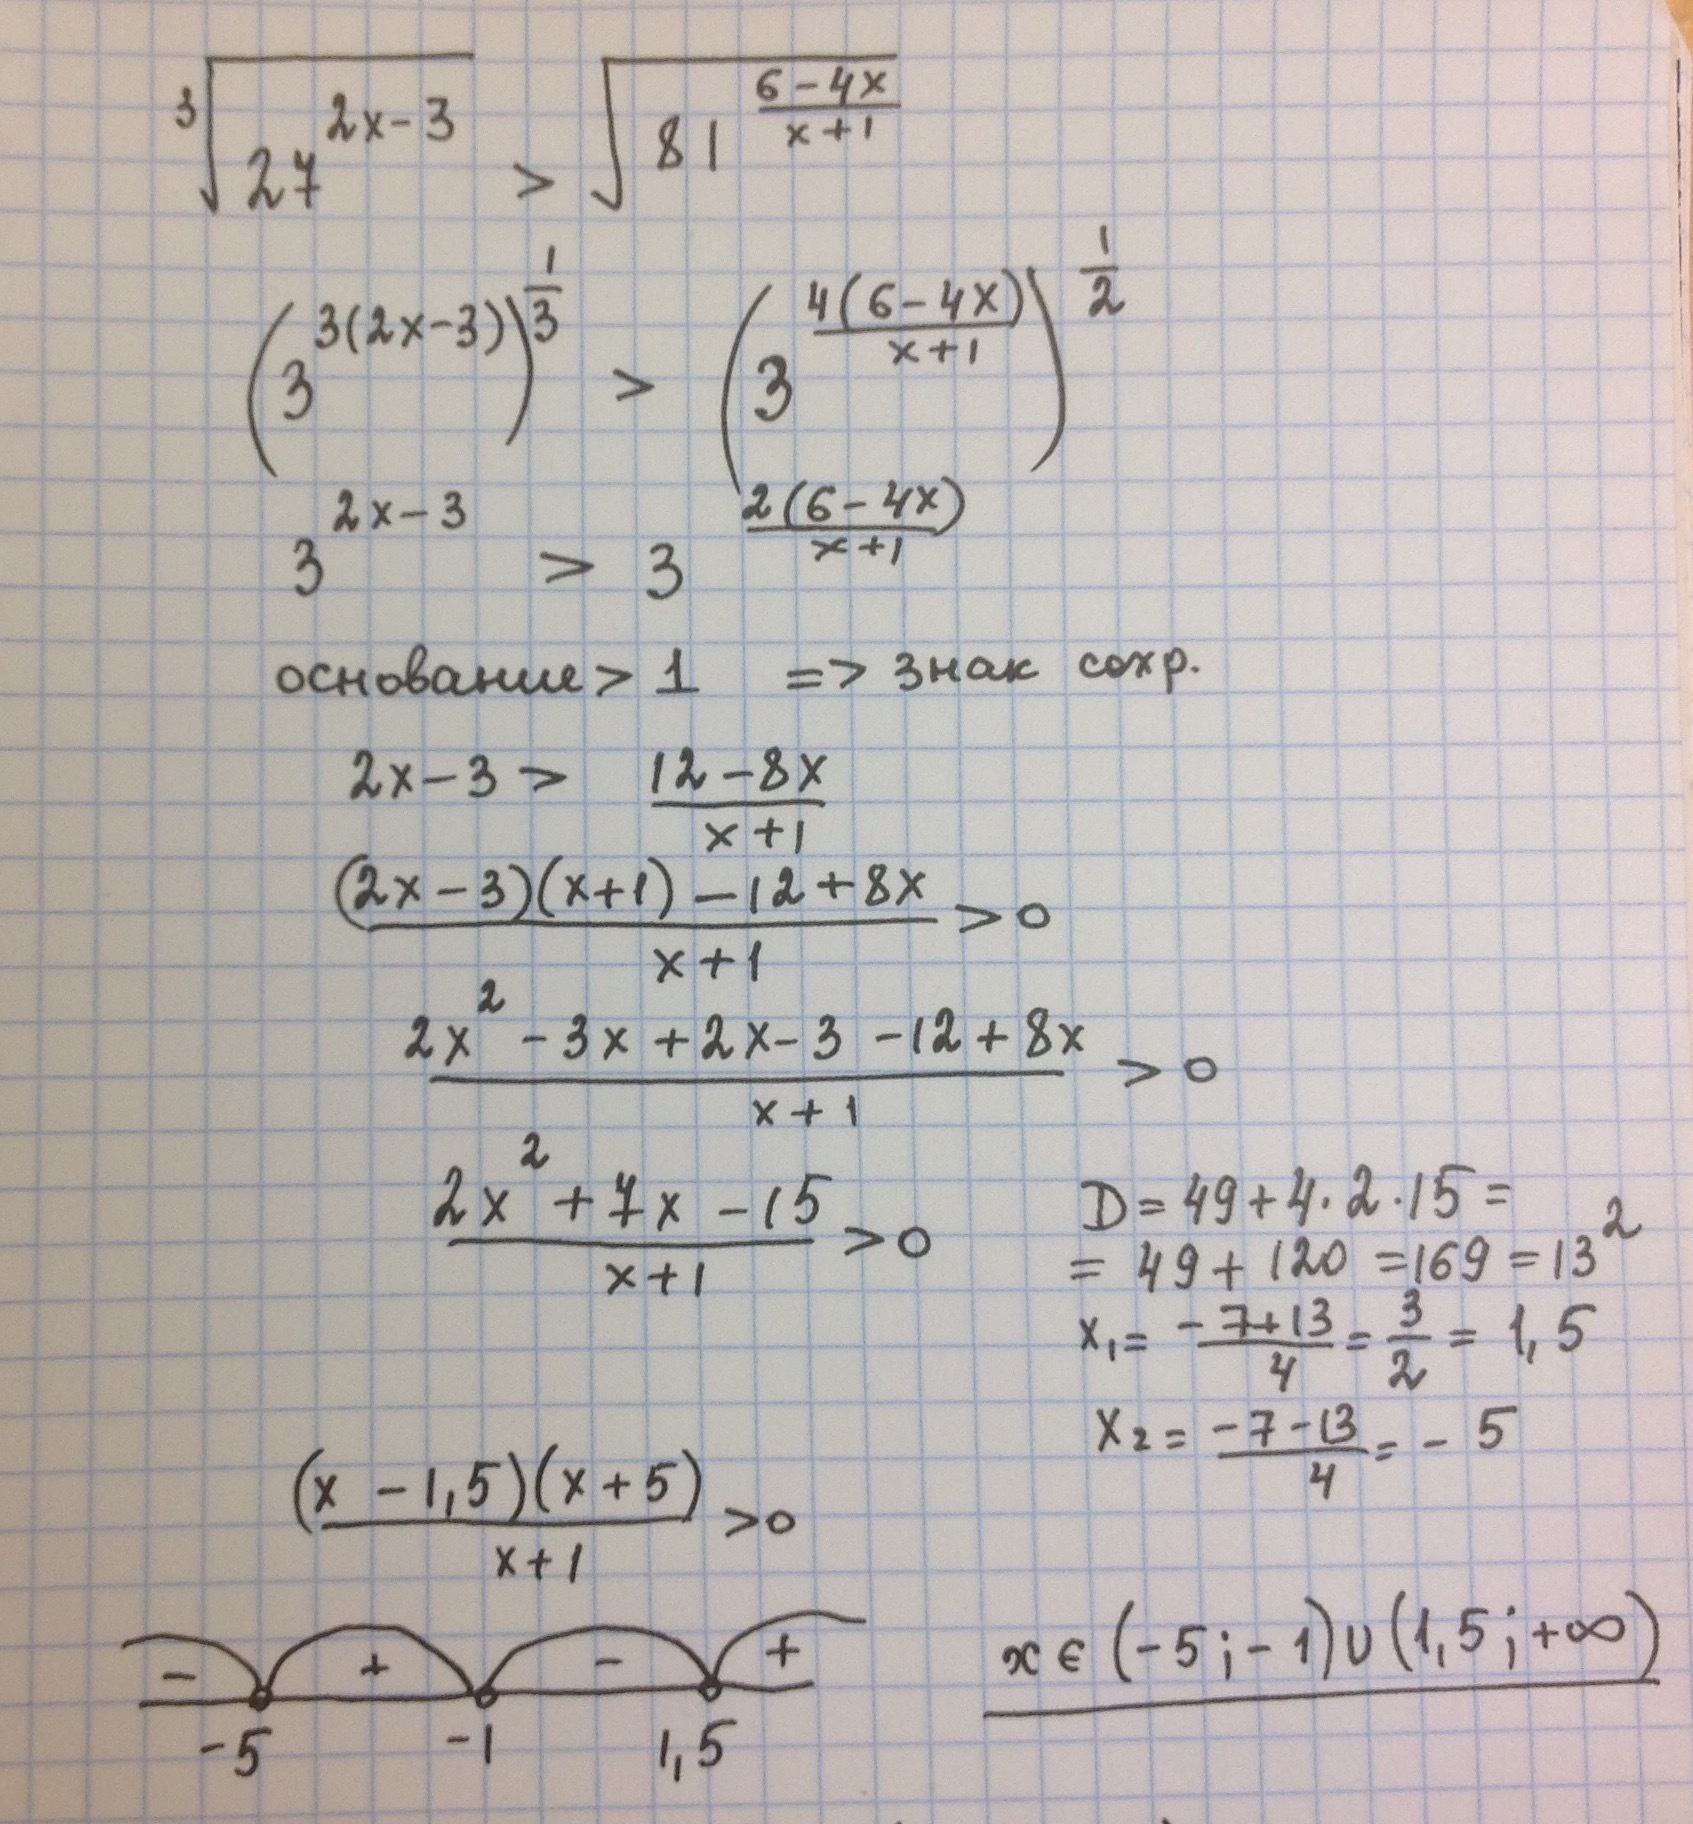 ∛(27^(2x-3)) > √(81^((6-4x)/(x+1)))
(3^(3(2x-3)))^(1/3) > (3^(4(6-4x)/(x+1)))^(1/2)
3^(2x-3) > 3^(2(6-4x)/(x+1))
основание > 1 => знак сохр.
2x-3 > (12-8x)/(x+1)
((2x-3)(x+1)-12+8x)/(x+1) > 0
(2x²-3x+2x-3-12+8x)/(x+1) > 0
(2x²+7x-15)/(x+1) > 0
D = 49+4·2·15 =
= 49+120 = 169 = 13²
x₁ = (-7+13)/4 = 3/2 = 1,5
x₂ = (-7-13)/4 = -5
((x-1,5)(x+5))/(x+1) > 0
- + - +
-5 -1 1,5
x ∈ (-5;-1)∪(1,5;+∞)